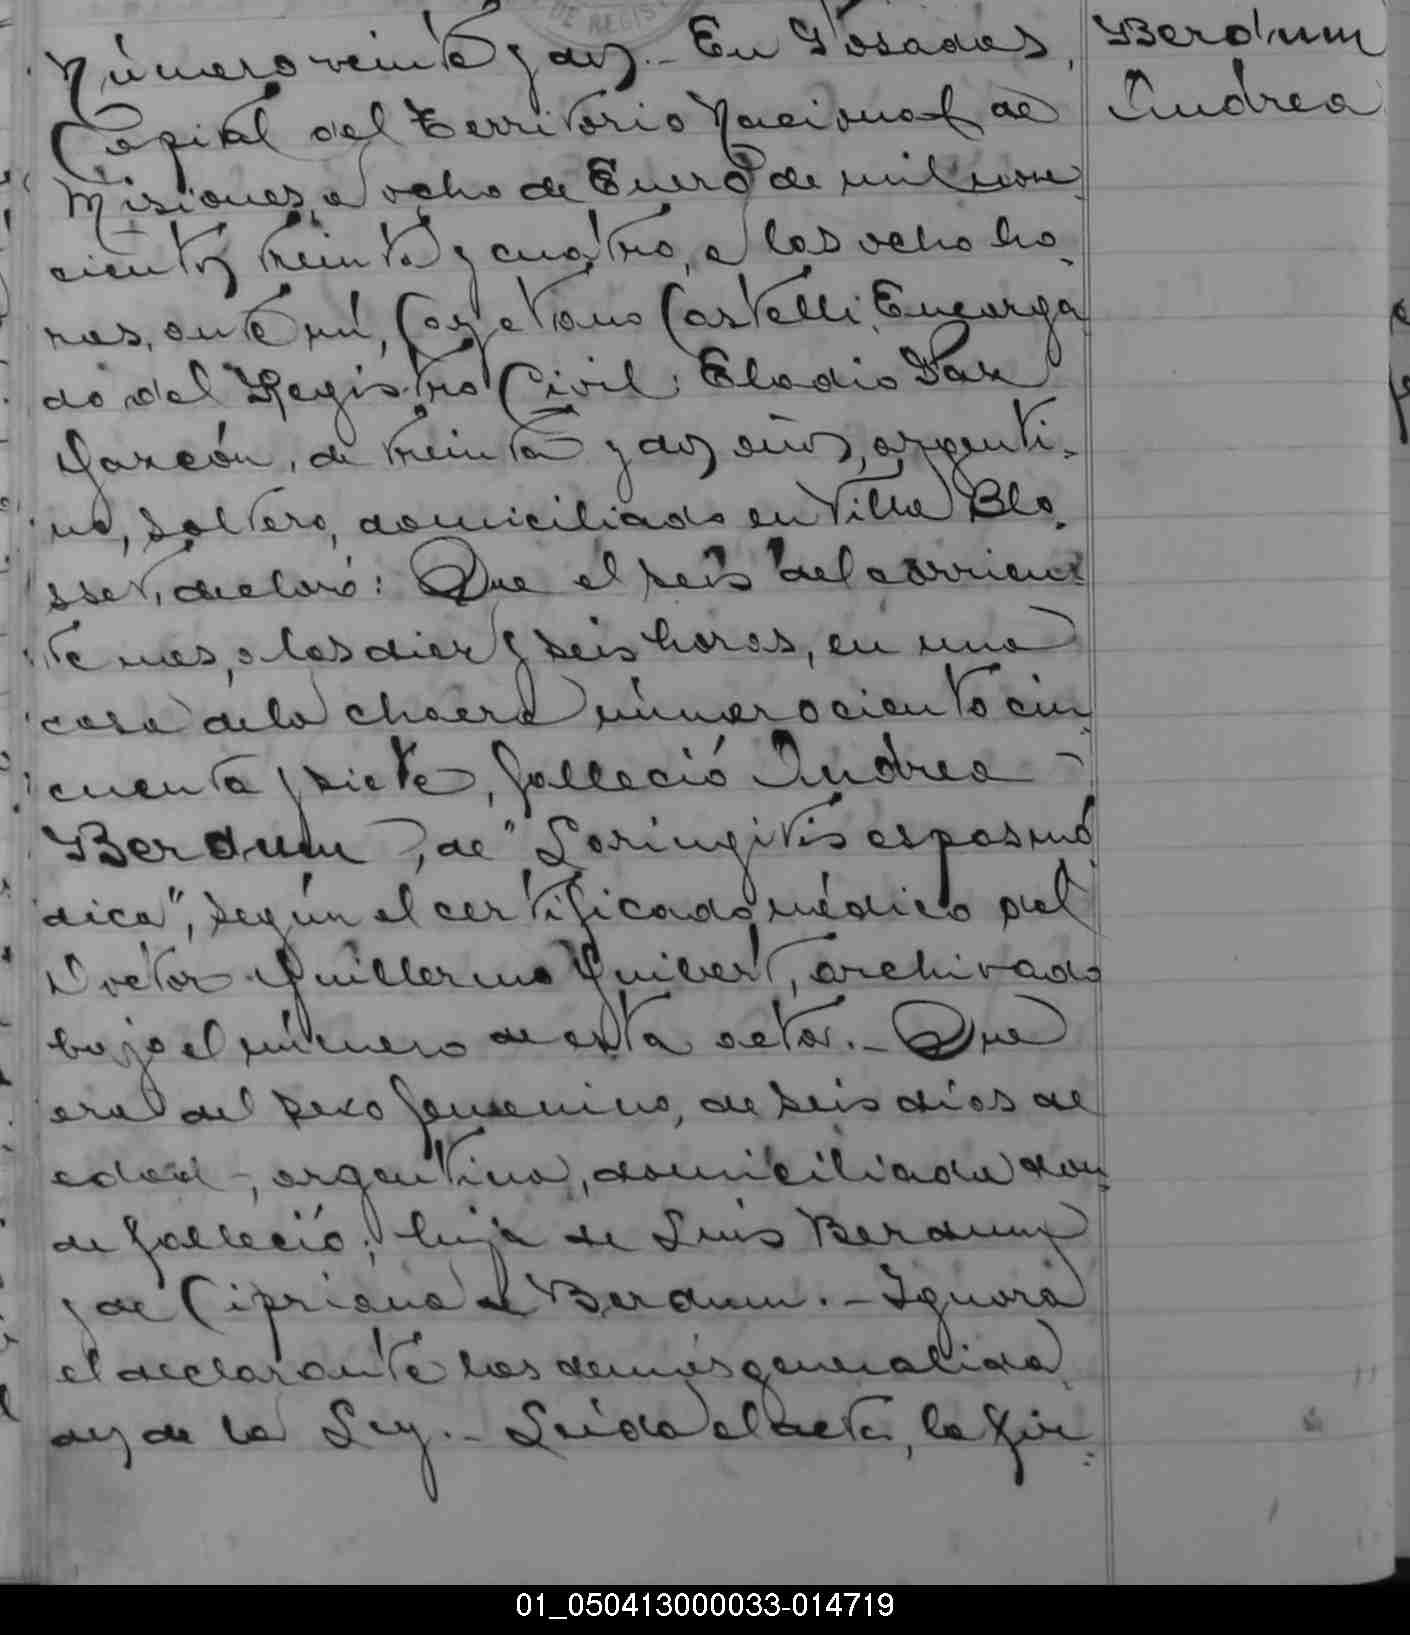 Número veinte y dos.- En Posadas,
Capital del Territorio Nacional de
Misiones, a ocho de Enero de mil nove
cientos treinta y cuatro, a las ocho ho-
ras, ante mí, Cayetano Castelli, Encarga
do del Registro Civil: Eladio Paz
Garzón, de treinta y dos años, argenti-
no, soltero, domiciliado en Villa Blo-
sset, declaró: Que el seis del corrien
te mes, a las diez y seis horas, en una
casa de la chacra número ciento cin-
cuenta y siete, falleció Andrea -
Berdum, de "Laringitis espasmó
dica", según el certificado médico del
Doctor Guillermo Guibert, archivado
bajo el número de esta acta.- Que
era del sexo femenino, de seis días de
edad-, argentina, domiciliada don-
de falleció; hija de Luis Berdum
y de Cipriana de Berdum.- Ignora
el declarante las demás generalida-
des de la Ley.- Leída el acta, la fir-
Berdum
Andrea
01_050413000033-014719